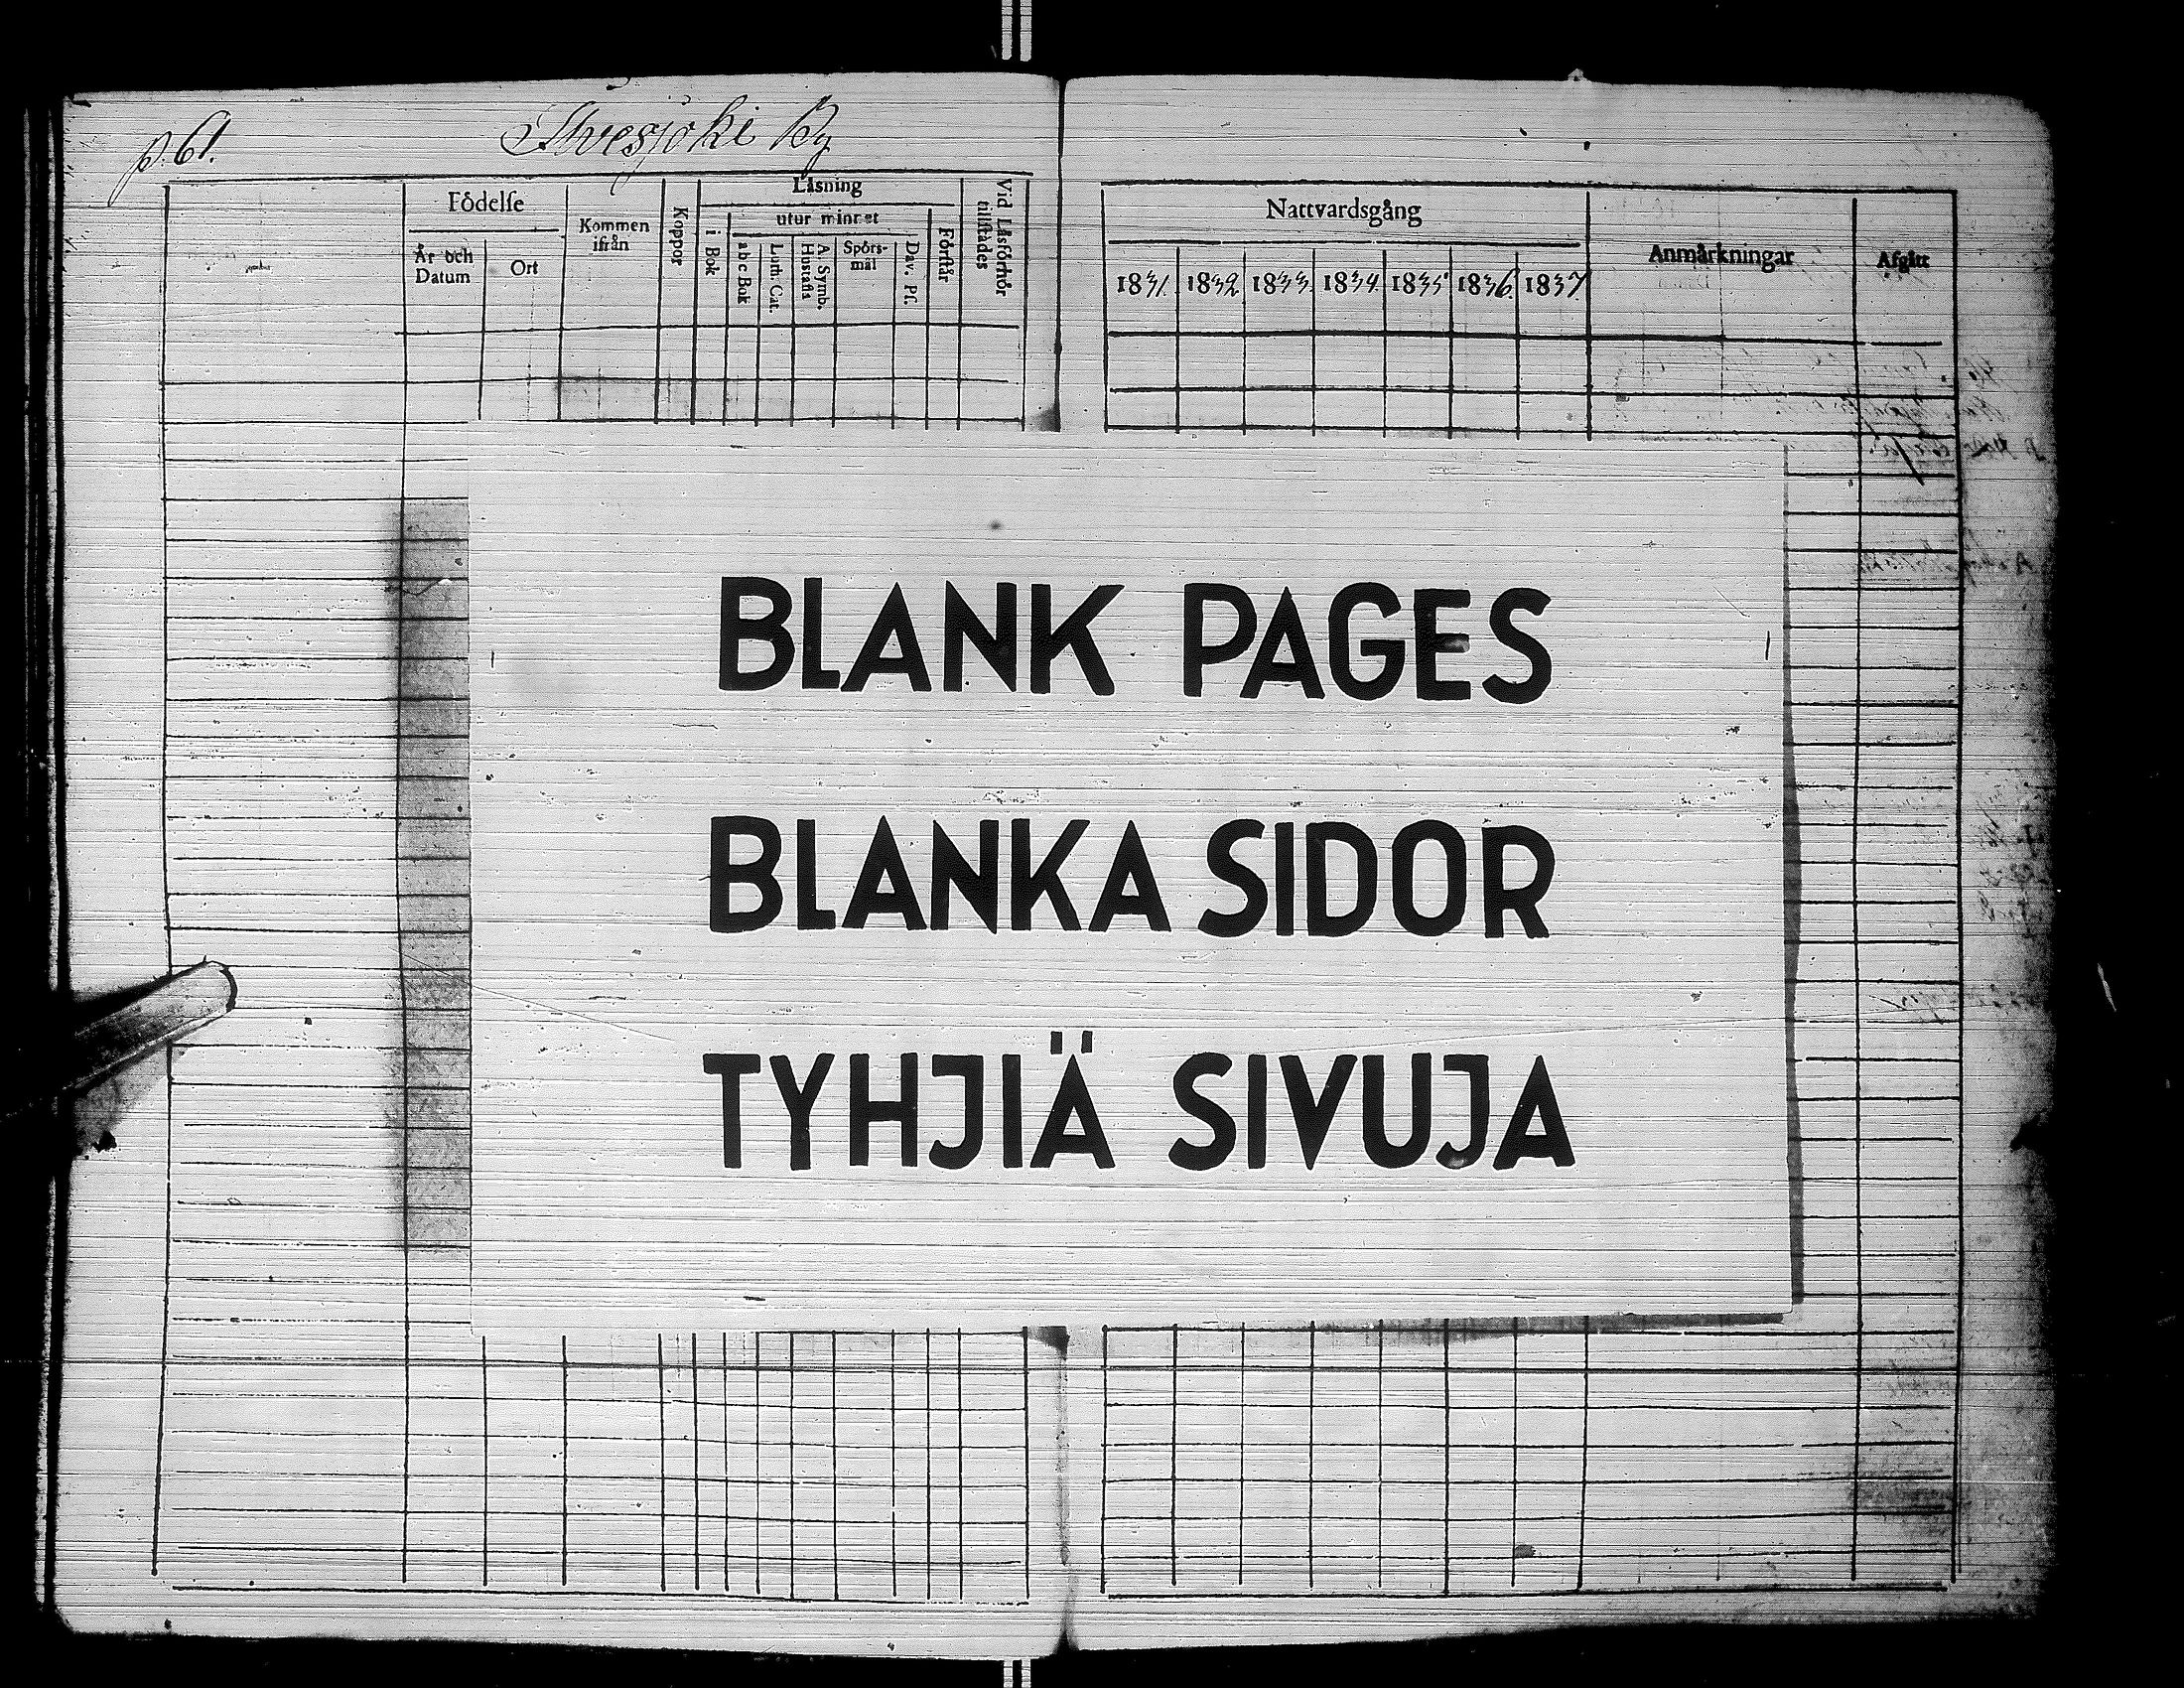 p. 61.
Ilvesjoki By
Födelse
År och
Datum
Ort
Kommen
ifrån
Koppor
Läsning
i Bok
utur minnet
abc Bok
Luth. Cat.
A. Symb.
Hustafla
Spörs-
mål
Dav. Ps.
Förstår
Vid Läsförhör
tillstädes
Nattvardsgång
1831. 1832. 1833. 1834. 1835. 1836. 1837.
Anmärkningar
Afgått
BLANK PAGES
BLANKA SIDOR
TYHJIÄ SIVUJA